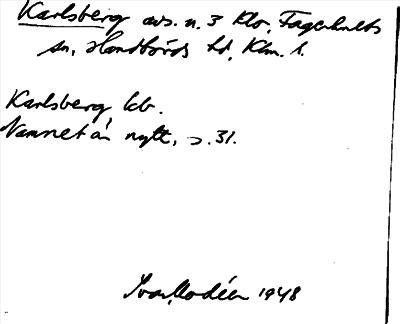 Karlsberg avs. n. 3 Klo, Fagerhults
sn, Handbörds hd, Klm. l.
Karlsberg kb.
Namnet är nytt, s. 31.
Ivar Modéer 1948